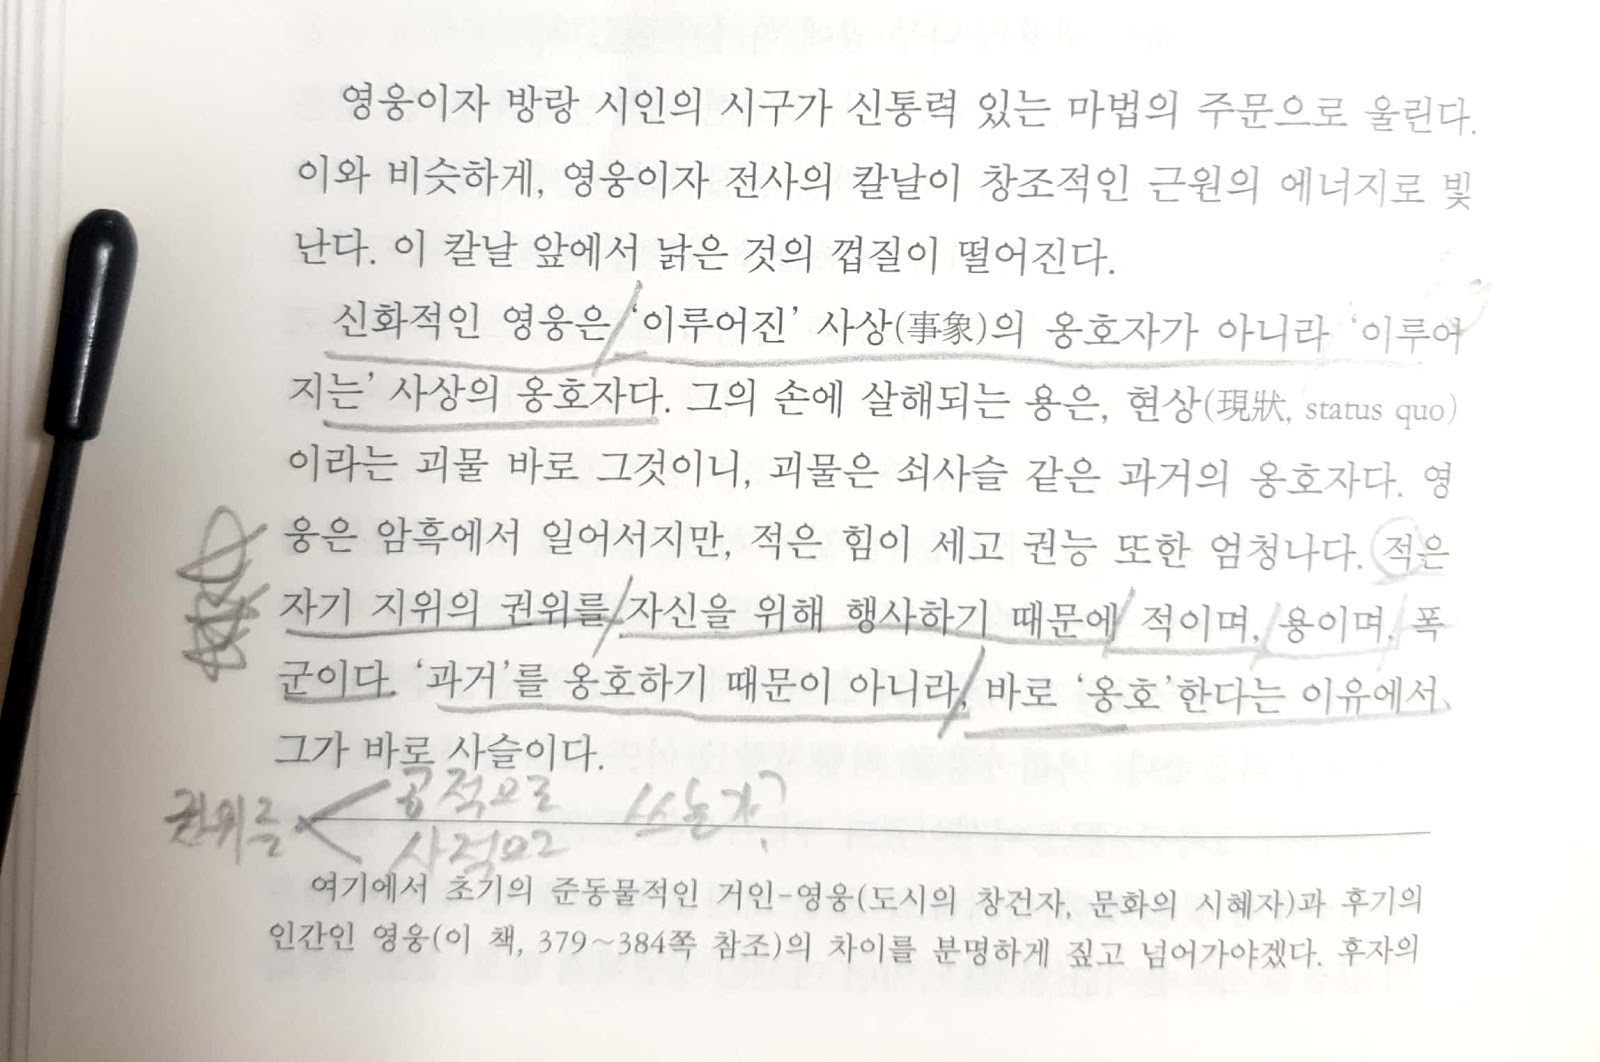 영웅이자 방랑 시인의 시구가 신통력 있는 마법의 주문으로 울린다.
이와 비슷하게, 영웅이자 전사의 칼날이 창조적인 근원의 에너지로 빛
난다. 이 칼날 앞에서 낡은 것의 껍질이 떨어진다.
신화적인 영웅은 ‘이루어진’ 사상(事象)의 옹호자가 아니라 ‘이루어
지는’ 사상의 옹호자다. 그의 손에 살해되는 용은, 현상(現狀, status quo)
이라는 괴물 바로 그것이니, 괴물은 쇠사슬 같은 과거의 옹호자다. 영
웅은 암흑에서 일어서지만, 적은 힘이 세고 권능 또한 엄청나다. 적은
자기 지위의 권위를 자신을 위해 행사하기 때문에 적이며, 용이며, 폭
군이다. ‘과거’를 옹호하기 때문이 아니라, 바로 ‘옹호’한다는 이유에서
그가 바로 사슬이다.
권위를 공적으로 쓰는가?
사적으로
여기에서 초기의 준동물적인 거인-영웅(도시의 창건자, 문화의 시혜자)과 후기의
인간인 영웅(이 책, 379~384쪽 참조)의 차이를 분명하게 짚고 넘어가야겠다. 후자의